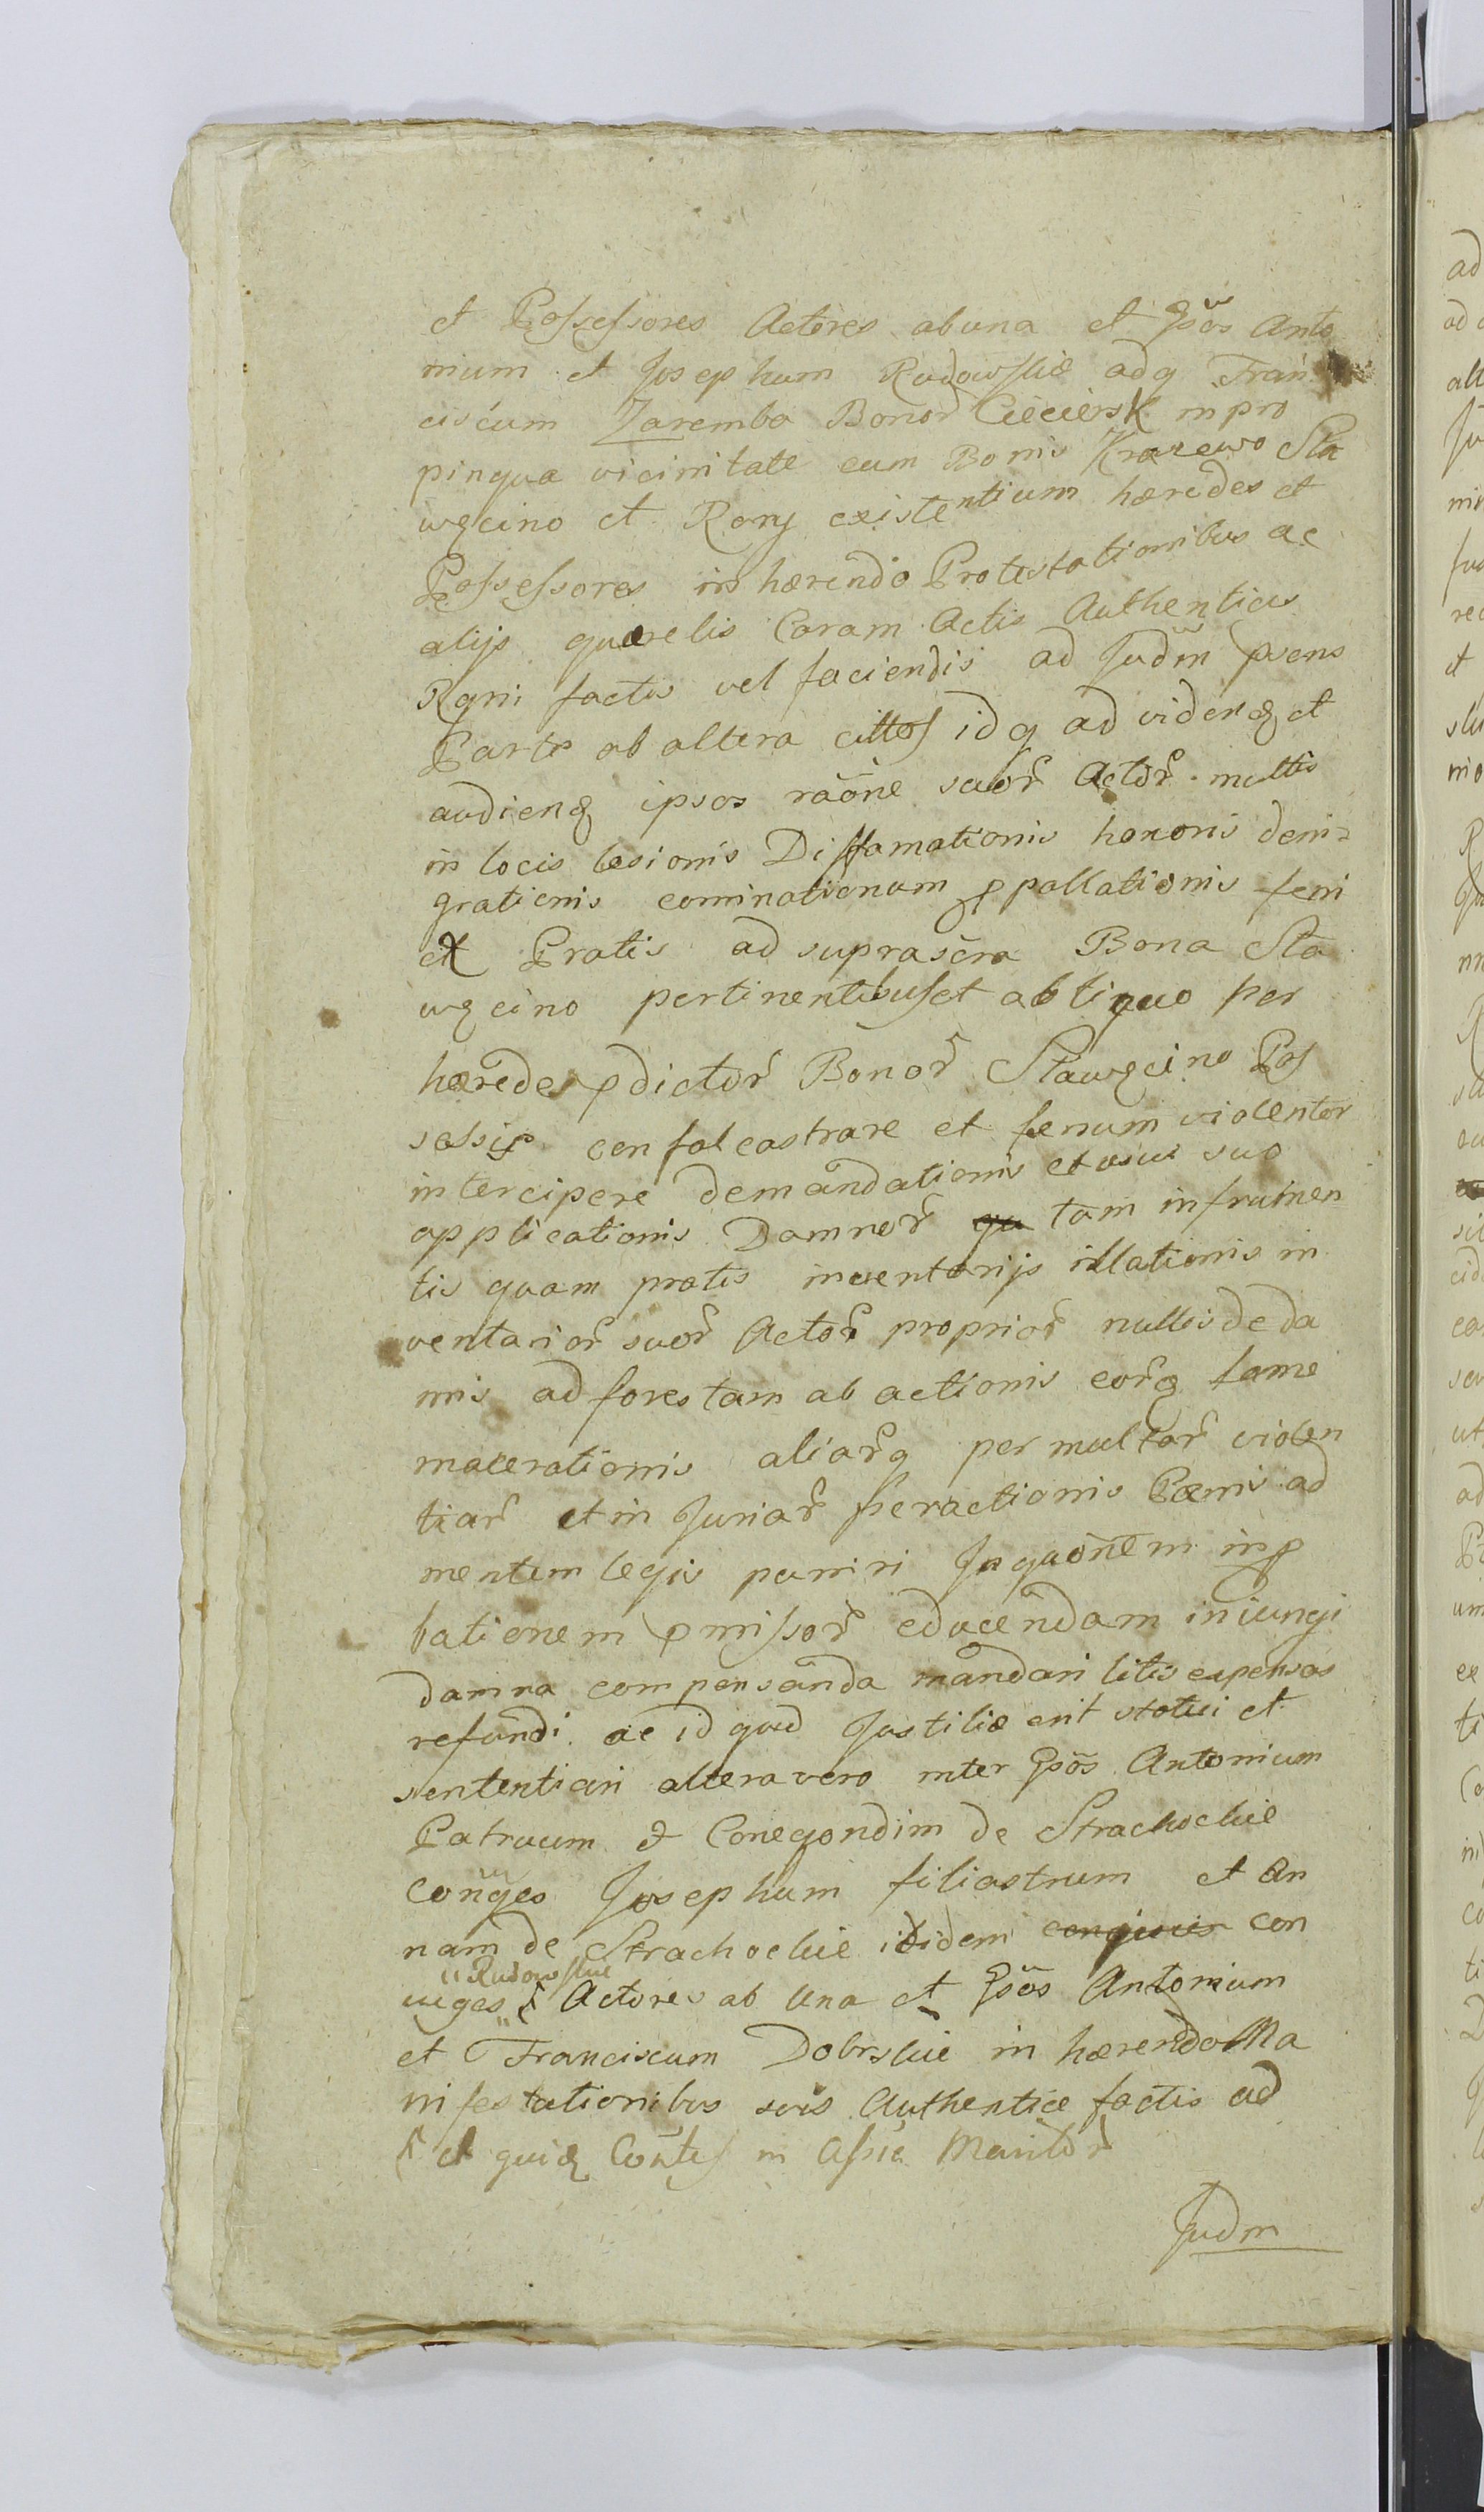 et Possessores Actores ab una et Gsõs Anto
nium et Josephum Rudowskie adq Fran
ciscum Zaremba Bonor̃ Cieciersk in pro
pinqua vicinitate cum Bonis Krarewo Sta
węcino et Rony existentium hæredes et
Possessores in hærendo Protestationibus ac
alijs quærelis Coram Actis Authenticis
Rgni factis vel faciendis ad Judm̃ psens
Parte ab altera cittos idq ad videnḡ et
audienḡ ipsos raõne suor̃ Actor̃ multis
in locis lesionis Diffamationis honoris deni=
grationis cominationum ppallationis feni
ex Pratis ad suprascra Bona Sta
węcino pertinentibus et ab tiquo per
hæredes pdictor̃ Bonor̃ Stawęcino Pos
sessis confalcastrare et fenum violenter
intercipere demandationis et usui suo
applicationis Damnor̃ qu tam in frumen
tis quam pratis inventarijs illationis in
ventarior̃ suor̃ Actor̃ proprior̃ nullis de da
mis ad forestam ab actionis eor̃q fame
macerationis aliar̃q per multar̃ violen
tiar̃ et in Juriar̃ peractionis Pœnis ad
mentem legis puniri Inquõnem in p
bationem pmissor̃ educendam iniungi
damna compensanda mandari litis expensas
refundi ac id quod Justitiæ erit statui et
sententiari altera vero inter Gsõs Antonium
Patruum et Conegondim de Strachockie
Conũges Josephum filiastrum et An
nam de Strachockie ibidem conjuis con
Rudowskie
iuges Actores ab Una et Gsõs Antonium
et Franciscum Dobrskie in hærendo Ma
nifestationibus suis Authentice factis ad
et quiḡ Contes in Assia Maritor̃
Judm